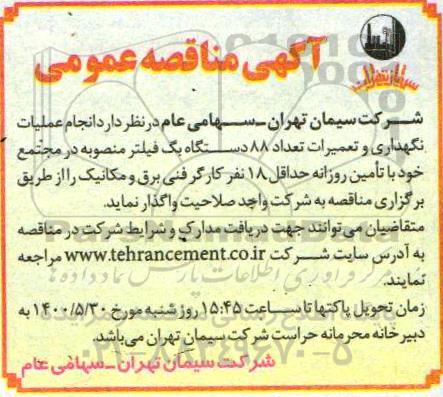 آگهی مناقصه عمومی
سیمان تهران
شرکت سیمان تهران ـ سهامی عام در نظر دارد انجام عملیات
نگهداری و تعمیرات تعداد ۸۸ دستگاه بگ فیلتر منصوبه در مجتمع
خود با تأمین روزانه حداقل ۱۸ نفر کارگر فنی برق و مکانیک را از طریق
برگزاری مناقصه به شرکت واجد صلاحیت واگذار نماید.
متقاضیان می توانند جهت دریافت مدارک و شرایط شرکت در مناقصه
به آدرس سایت شرکت www.tehrancement.co.ir مراجعه
نمایند.
زمان تحویل پاکتها تا ساعت ۱۵:۴۵ روز شنبه مورخ ۱۴۰۰/۵/۳۰ به
دبیرخانه محرمانه حراست شرکت سیمان تهران می باشد.
۰۲۱-۸۸۳۴۹۶۷۰-۵
شرکت سیمان تهران ـ سهامی عام